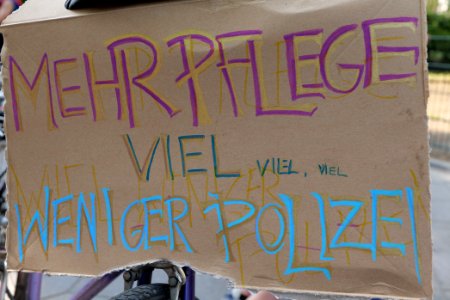 MEHR PFLEGE
VIEL, VIEL, VIEL
WENIGER POLIZEI